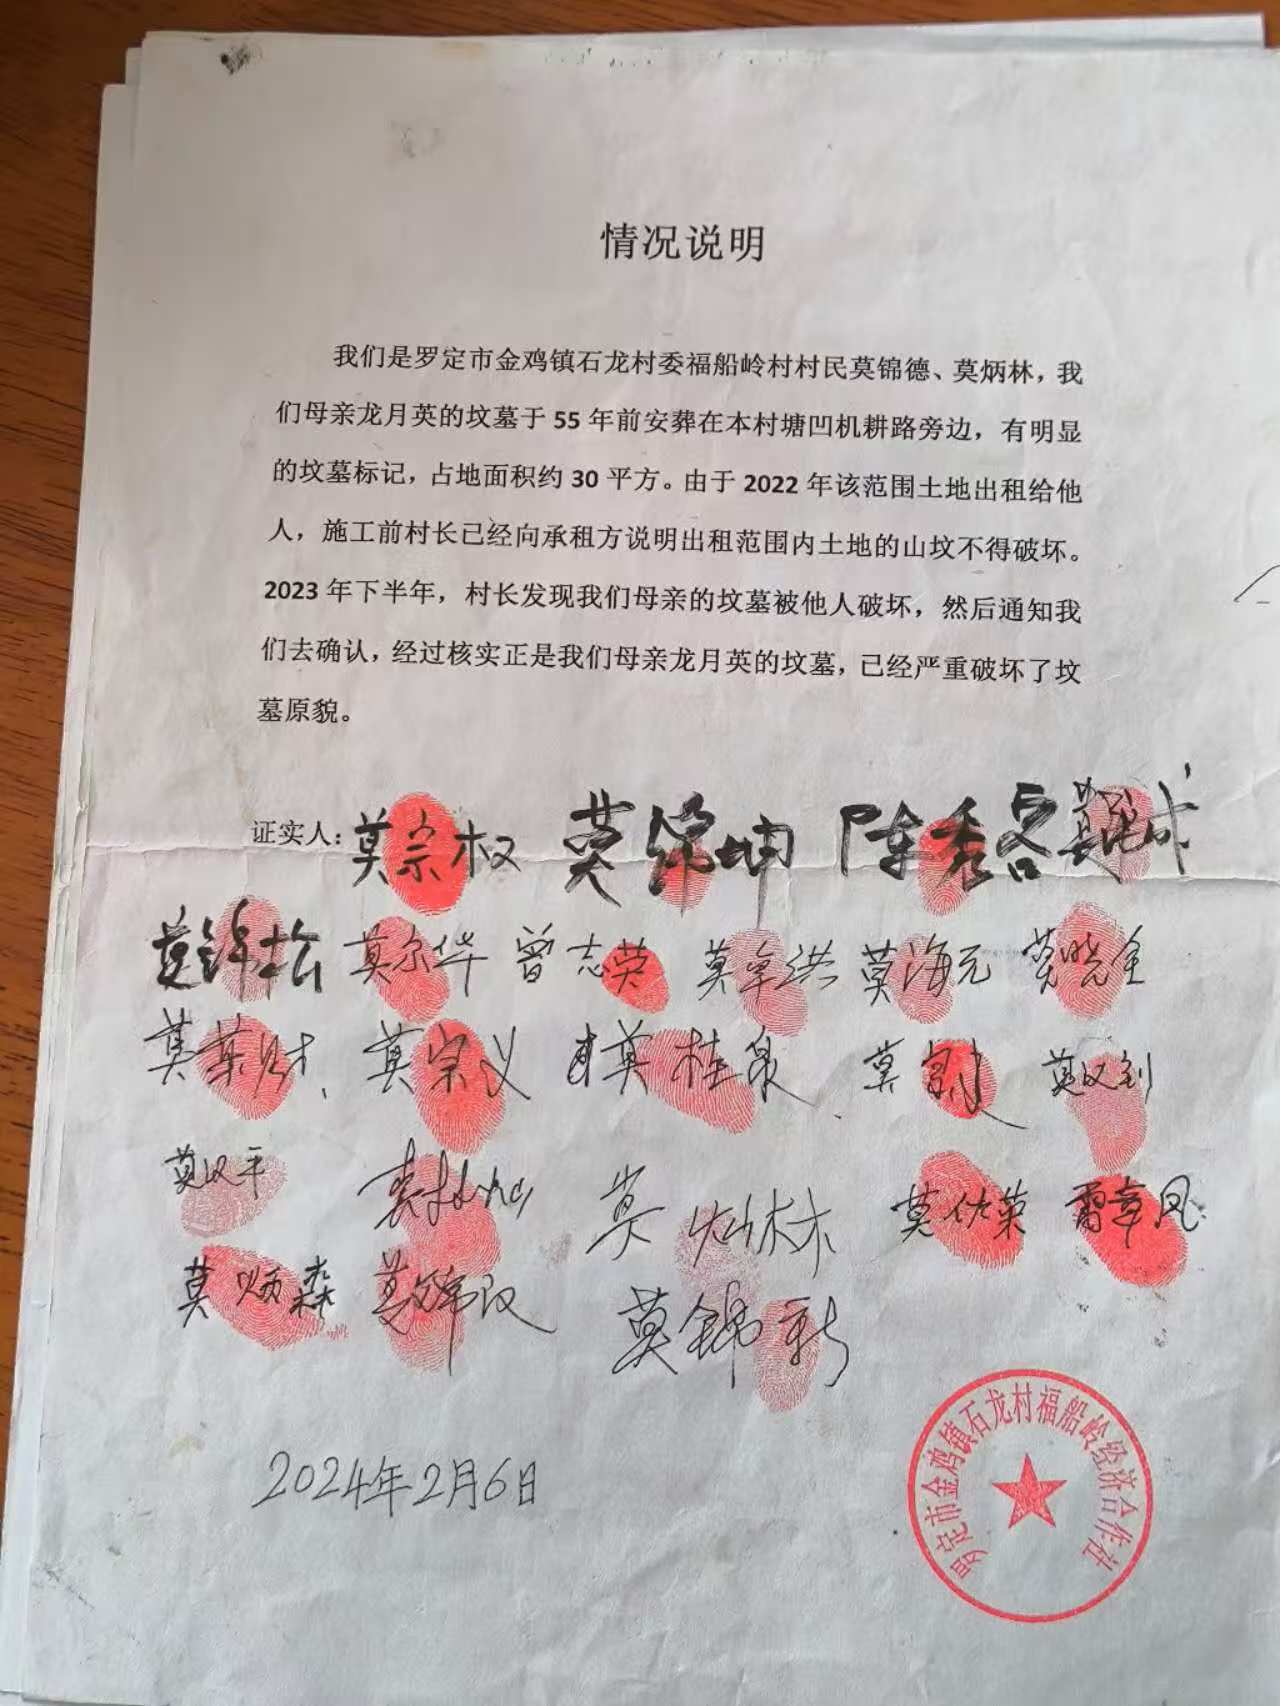 情况说明
我们是罗定市金鸡镇石龙村委福船岭村村民莫锦德、莫炳林，我
们母亲龙月英的坟墓于 55 年前安葬在本村塘凹机耕路旁边，有明显
的坟墓标记，占地面积约 30 平方。由于 2022 年该范围土地出租给他
人，施工前村长已经向承租方说明出租范围内土地的山坟不得破坏。
2023 年下半年，村长发现我们母亲的坟墓被他人破坏，然后通知我
们去确认，经过核实正是我们母亲龙月英的坟墓，已经严重破坏了坟
墓原貌。
证实人：莫宗权 莫锦坤 陈秀容
莫锦松 莫尔华 曾志荣 莫卓洪 莫海元 莫晓全
莫荣财 莫宗义 莫桂泉 莫 莫汉剑
莫汉平 莫灿林 莫佐荣
莫炳森 莫锦汉 莫锦新
2024年2月6日
罗定市金鸡镇石龙村福船岭经济合作社